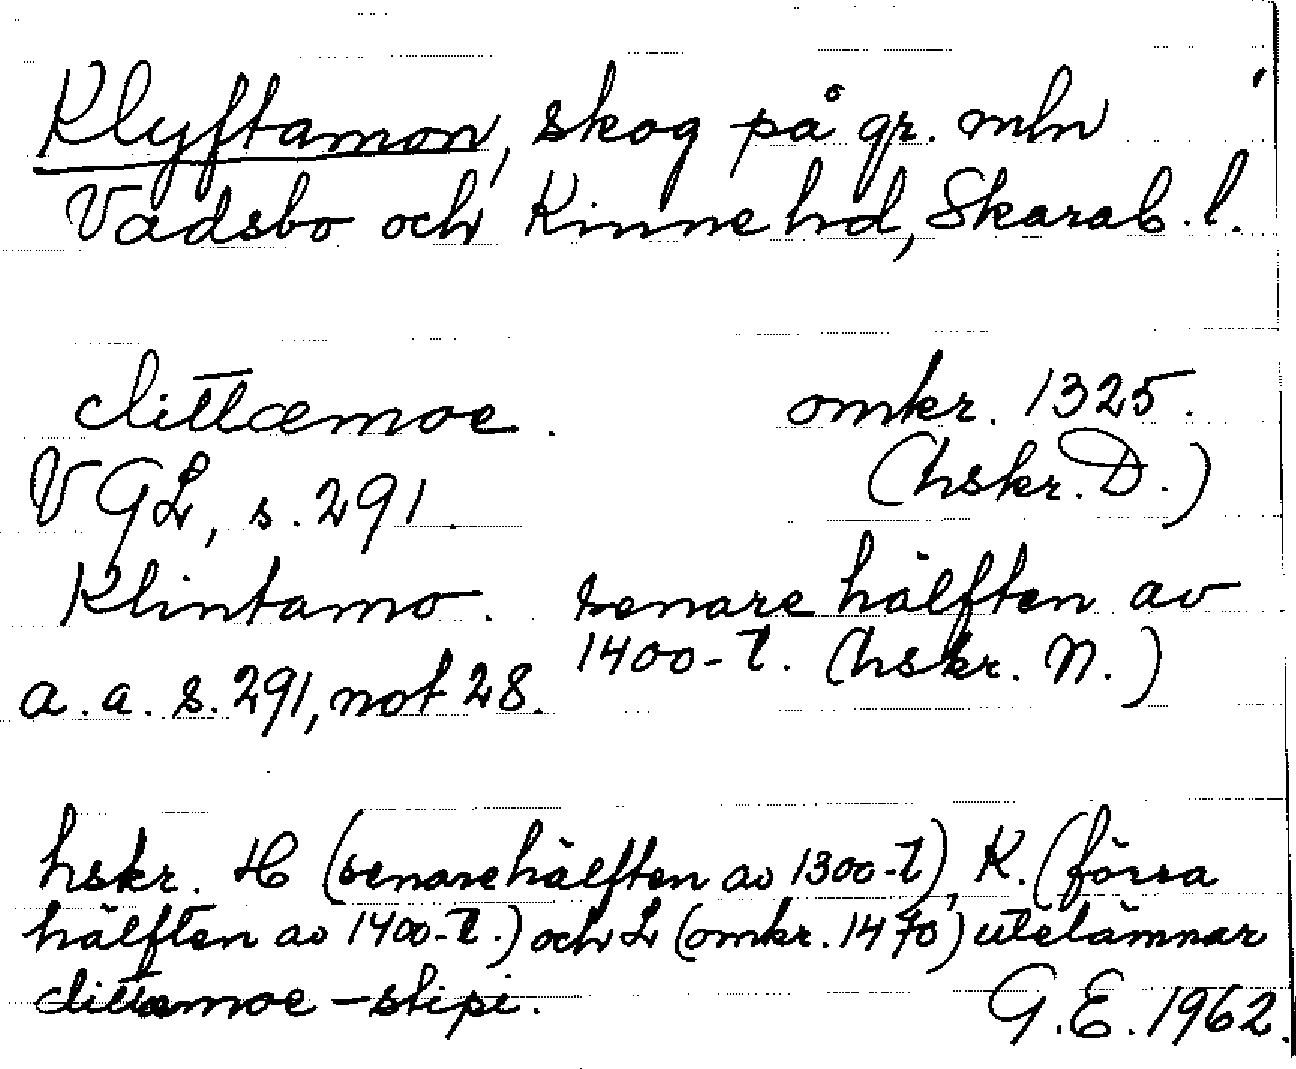 Klyftamon, skog på gr. mln
Vadsbo och Kinne hd, Skarab. l.
clittæmoe. omkr. 1325.
VGL, s. 291. (hskr. D.)
Klintamo. senare hälften av
a. a. s. 291, not 28. 1400-t. (hskr. N.)
hskr. H (senare hälften av 1300-t), K. (förra
hälften av 1400-t.) och L (omkr. 1470) utelämnar
clittæmoe – stipi.
G.E. 1962.